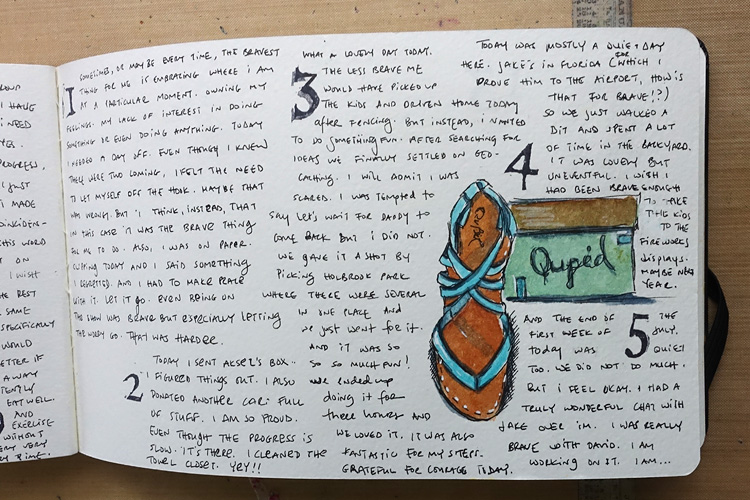 ROUP
I HAVE
I NEED
YES.
PROGRESS.
I JUST
I MADE
OINCIDEN-
THIS WORD
T ON
I WISH
HE BEST
I SAME
SPECIFICALLY
WOULD
BETTER IF
A WAY
EAT WELL.
AND
EXERCISE
WITHOUT
VERY VERY
TIME.
1
SOMETIMES, OR MAYBE EVERY TIME, THE BRAVEST
THING FOR ME IS EMBRACING WHERE I AM
AT A PARTICULAR MOMENT. OWNING MY
FEELINGS. MY LACK OF INTEREST IN DOING
SOMETHING OR EVEN DOING ANYTHING. TODAY
I NEEDED A DAY OFF. EVEN THOUGH I KNEW
THERE WERE TWO COMING, I FELT THE NEED
TO LET MYSELF OFF THE HOOK. MAYBE THAT
WAS WRONG. BUT I THINK, INSTEAD, THAT
IN THIS CASE IT WAS THE BRAVE THING
FOR ME TO DO. ALSO, I WAS ON PAPER
CLIPPING TODAY AND I SAID SOMETHING
I REGRETTED. AND I HAD TO MAKE PEACE
WITH IT. LET IT go. EVEN BEING ON
THE SHOW WAS BRAVE BUT ESPECIALLY LETTING
THE WORRY GO. THAT WAS HARDER.
2
TODAY I SENT AKSEL'S BOX..
I FIGURED THINGS OUT. I ALSO
DONATED ANOTHER CAR FULL
OF STUFF. I AM SO PROUD.
EVEN THOUGH THE PROGRESS IS
SLOW. IT'S THERE. I CLEANED THE
TOWEL CLOSET. YEY!!
3
WHAT A LOVELY DAY TODAY.
THE LESS BRAVE ME
WOULD HAVE PICKED UP
THE KIDS AND DRIVEN HOME TODAY
after FENCING. BUT INSTEAD, I WANTED
TO DO SOMETHING FUN. AFTER SEARCHING FOR
IDEAS WE FINALLY SETTLED ON GEO-
CACHING. I WILL ADMIT I WAS
SCARED. I WAS TEMPTED TO
SAY LET'S WAIT FOR DADDY TO
COME BACK BUT I DID NOT.
WE GAVE IT A SHOT BY
PICKING HOLBROOK PARK
WHERE THERE WERE SEVERAL
IN ONE PLACE AND
we just WENT FOR IT.
AND IT WAS SO
SO SO MUCH FUN!
we ended up
doing it for
three hours AND
WE LOVED IT. IT WAS ALSO
FANTASTIC FOR MY STEPS.
GRATEFUL FOR COURAGE TODAY.
4
TODAY WAS MOSTLY A QUIET DAY
HERE. JAKE'S IN FLORIDA (WHICH I
DROVE HIM TO THE AIRPORT, HOW IS
THAT FOR BRAVE!?)
SO WE JUST WALKED A
BIT AND SPENT A LOT
OF TIME IN THE BACKYARD.
IT WAS LOVELY BUT
UNEVENTFUL. I WISH I
HAD BEEN BRAVE ENOUGH
TO TAKE
THE KIDS
TO THE
FIREWORKS
DISPLAYS.
MAYBE NEXT
YEAR.
Qupéd
Qupéd
5
AND THE END OF THE
FIRST WEEK OF JULY.
Today WAS QUIET
TOO. WE DID NOT DO MUCH.
BUT I FEEL OKAY. I HAD A
TRULY WONDERFUL CHAT WITH
JAKE OVER IM. I WAS REALLY
BRAVE WITH DAVID. I AM
WORKING ON IT. I AM...